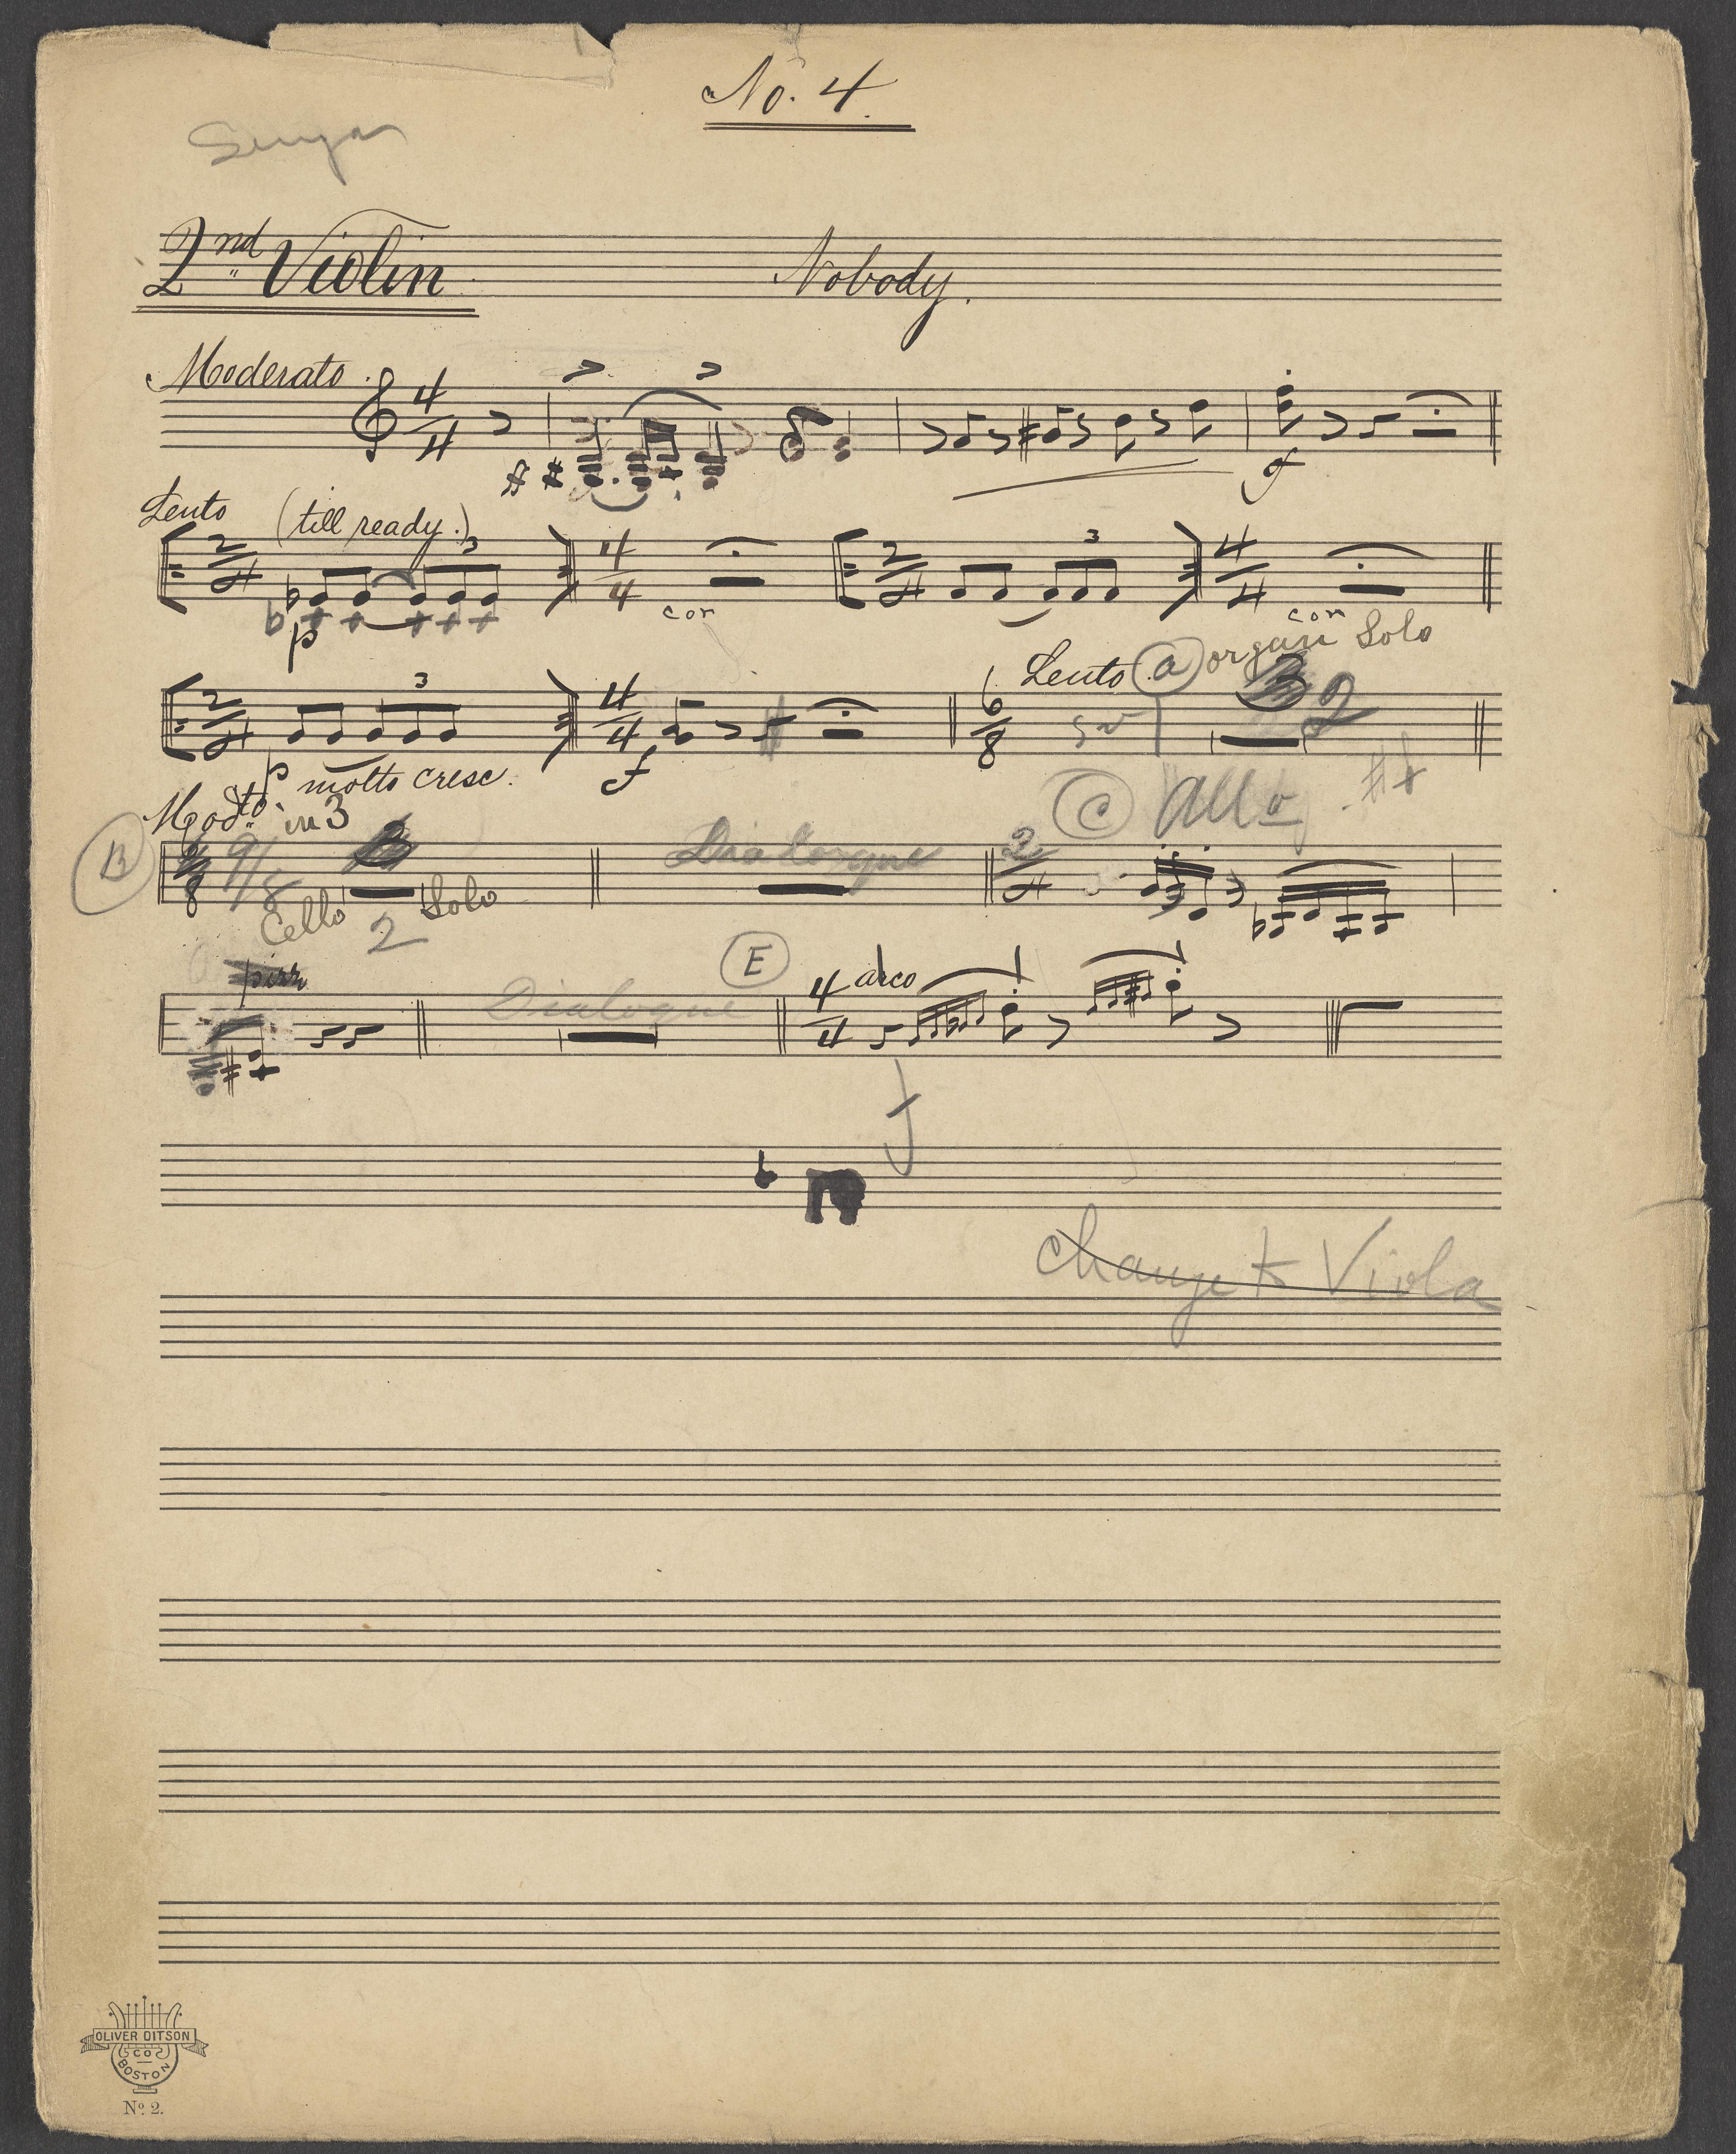 No. 4.
2nd Violin Nobody.
Moderato.
4/4
f
Lento (till ready.)
2/4 3 4/4 2/4 3 4/4
p cor cor
Lento a organ Solo
2/4 3 4/4 6/8 2
p molto cresc. f
Modto in 3 C Allo
B 9/8 Dialogue 2/4
Cello Solo
2
pizz Dialogue E 4/4 arco
f
Change to Viola
OLIVER DITSON
CO
BOSTON
No. 2.